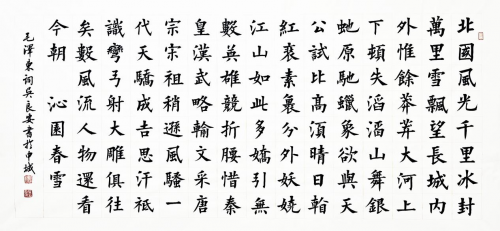 北國風光千里冰封
萬里雪飄望長城內
外惟餘莽莽大河上
下頓失滔滔山舞銀
虵原馳蠟象欲與天
公試比高須晴日
紅裹素裹分外妖嬈
江山如此多嬌引無
數英雄競折腰惜秦
皇漢武略輸文采唐
宗宋祖稍遜風騷一
代天驕成吉思汗祗
識彎弓射大雕俱往
矣數風流人物還看
今朝 沁園春雪
毛澤東詞吳良安書於申城